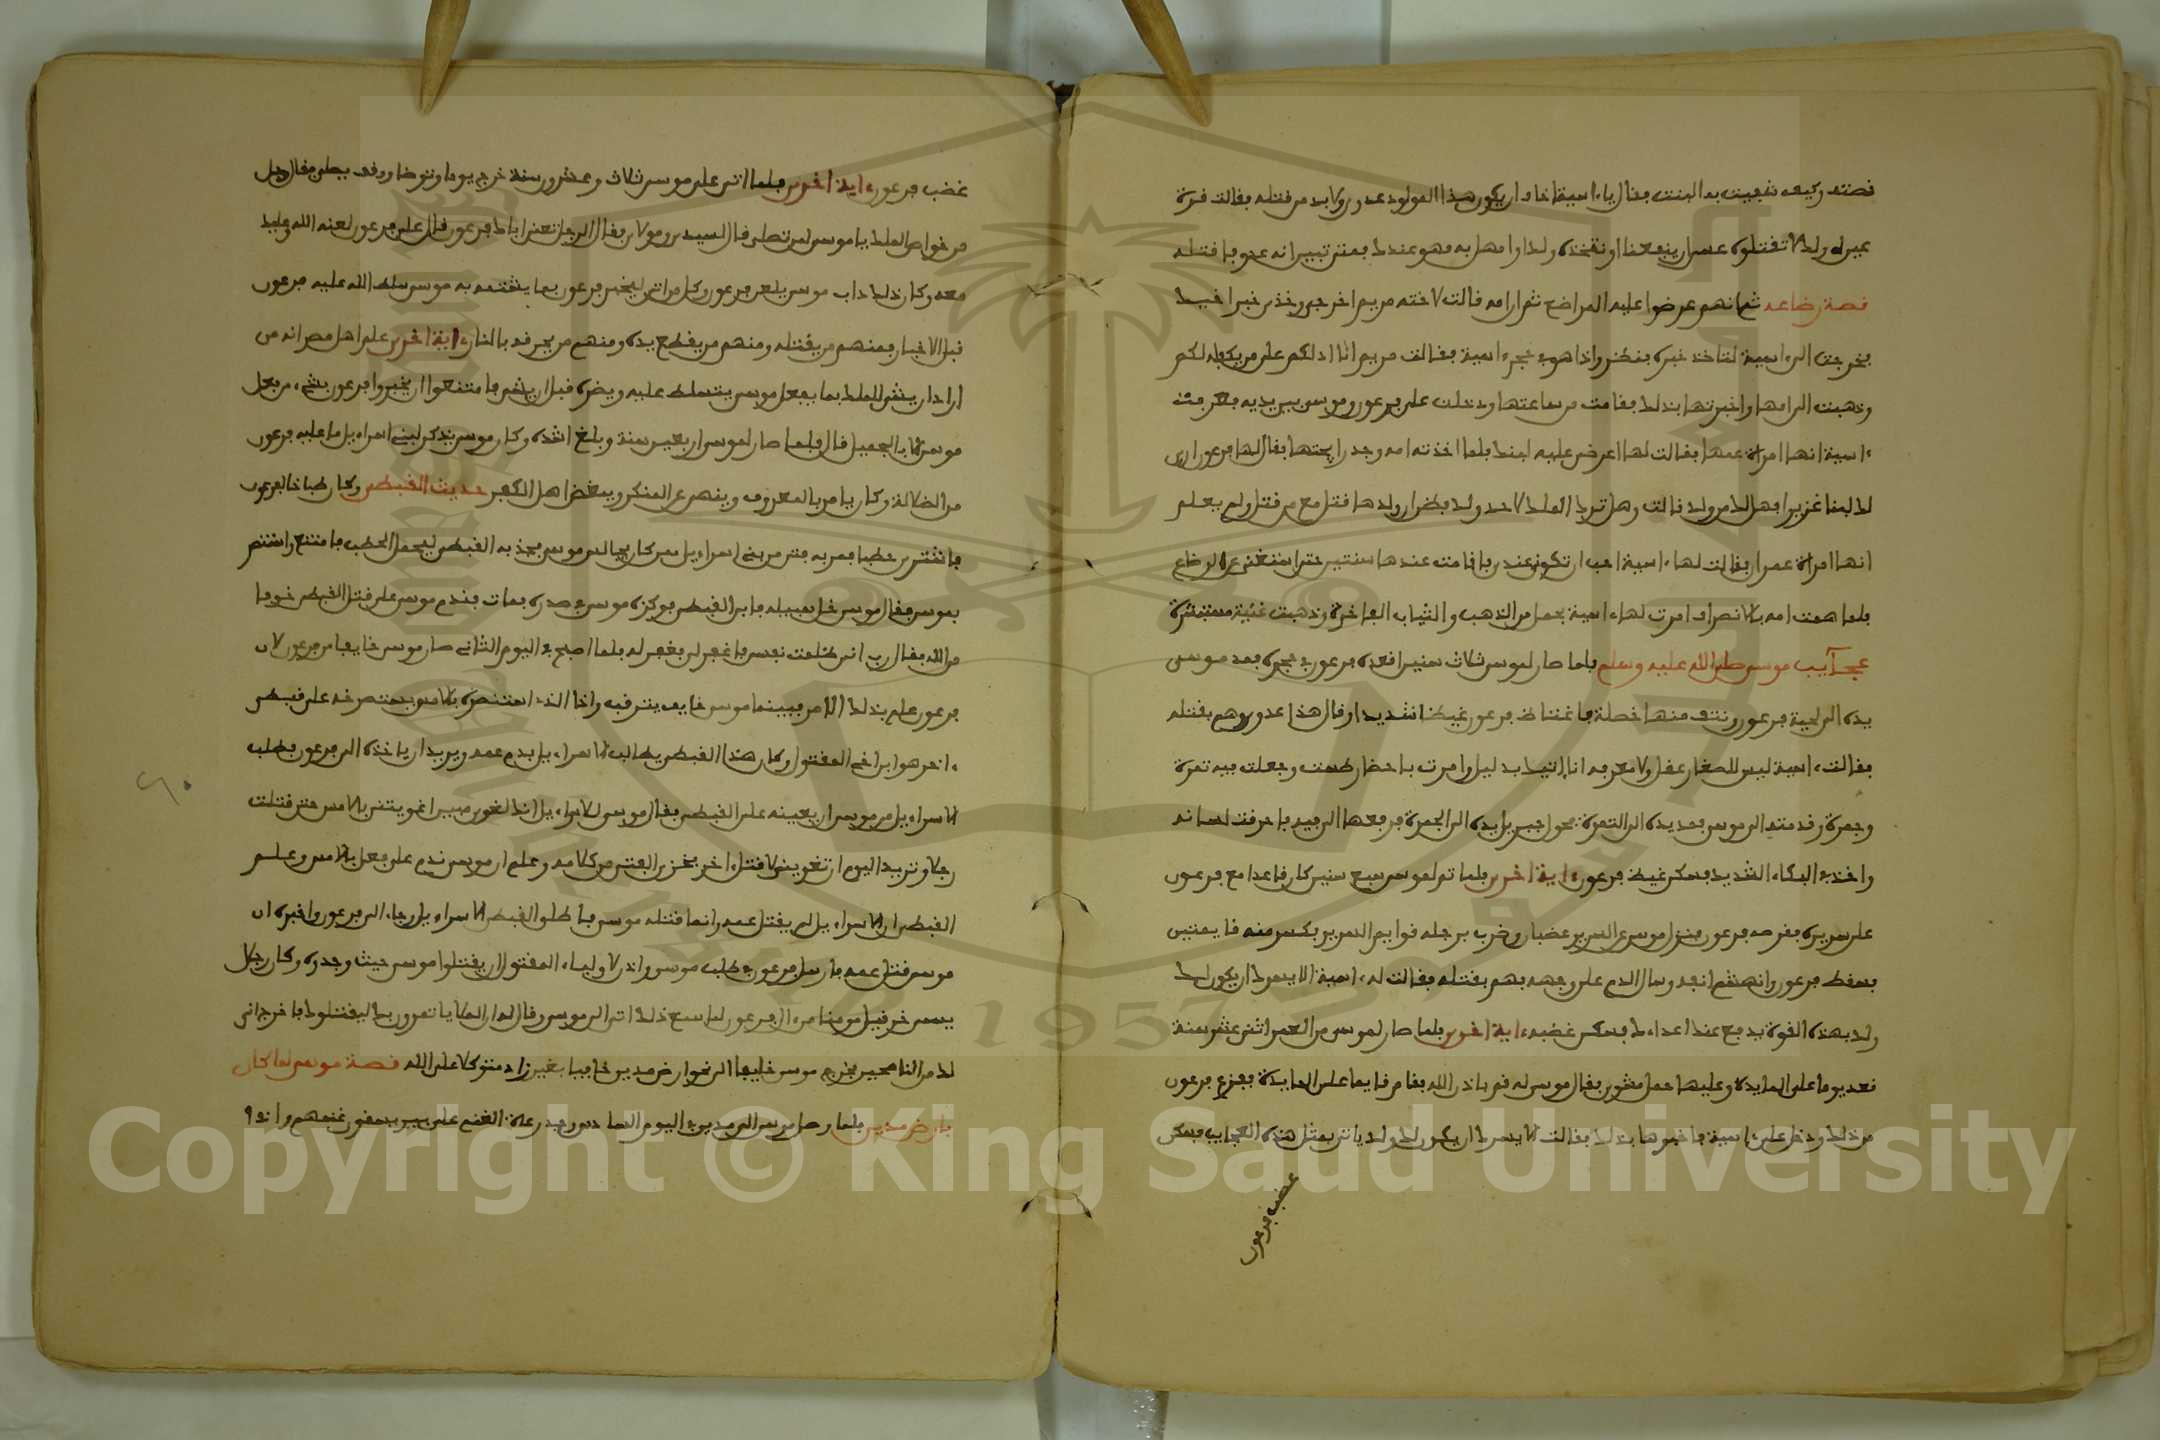 قصته وكيف شفيت به البنت فقال يا ءاسية اخاف ان يكون هذا المولود عدوي ولا بد من قتله فقالت قرة
عين لي ولك لا تقتلوه عسى ان ينفعنا او نتخذه ولدا وامهل به فهو عندك فمتى تبين انه عدو فاقتله
قصة رضاعه ثم انهم عرضوا عليه المراضع ثم ان امه قالت لاخته مريم اخرجي وخذي خبر اخيك
فخرجت الى ءاسية لتاخذ خبره فنظر واذا هو في حجر ءاسية فقالت مريم انا ادلكم على من يكفله لكم
وذهبت الى امها واخبرتها بذلك فقامت من ساعتها ودخلت على فرعون وموسى بين يديه فعرفت
ءاسية انها امراة عمها فقالت لها اعرض عليه لبنك فلما اخذته امه وجد رايحتها فقال لها فرعون ارى
لك لبنا غزيرا فهل لك من ولد قالت وهل ترك الملك لاحد ولد فظن ان ولدها قتل مع من قتل ولم يعلم
انها امراة عمران فقالت لها ءاسية احب ان تكوني عندي فاقامت عندها سنتين حتى استغنى عن الرضاع
فلما همت امه بالانصراف امرت لها ءاسية بحمل من الذهب والثياب الفاخرة وذهبت غنية مستبشرة
عجـآيب موسى صلى الله عليه وسلم فلما صار لموسى ثلاث سنين اقعده فرعون في حجره فمد موسى
يده الى لحية فرعون ونتف منها خصلة فاغتاظ فرعون غيظا شديدا وقال هذا عدوي وهم بقتله
فقالت ءاسية ليس للصغار عقل ولا معرفة انا اتيك بدليل وامرت باحضار طست وجعلت فيه تمرة
وجمرة وقدمته الى موسى فمد يده الى التمرة فحول جبريل يده الى الجمرة فرفعها الى فيه فاحرقت لسانه
واخذ في البكاء الشديد فسكن غيظ فرعون ءاية اخرى فلما تم لموسى سبع سنين كان قاعدا مع فرعون
على سريره فقرصه فرعون فنزل موسى عن السرير غضبان وضرب برجله قوايم السرير فكسر منه قايمتين
فسقط فرعون وانهشم انفه وسال الدم على وجهه فهم بقتله فقالت له ءاسية الا يسرك ان يكون لك
ولد بهذه القوة يدفع عنك اعداءك فسكن غضبه ءاية اخرى فلما صار لموسى من العمر اثنى عشر سنة
قعد يوما على المايدة وعليها جمل مشوي فقال موسى له قم باذن الله فقام قايما على المايدة ففزع فرعون
من ذلك ودخل على ءاسية فاخبرها بذلك فقالت الا يسرك ان يكون لك ولد ياتي بمثل هذه العجايب فسكن
غضب فرعون
غضب فرعون ءاية اخرى فلما اتى على موسى ثلاث وعشرون سنة خرج يوما وتوضا ووقف يصلي فقال رجل
من خواص الملك يا موسى لمن تصلي قال لسيدي ومولاي فقال الرجل تعني اباك فرعون قال على فرعون لعنه الله وعليك
معه وكان ذلك داب موسى يلعن فرعون وكل من اتى ليخبر فرعون بما يشتمه به موسى سلط الله عليه فرعون
قبل الاخبار فمنهم من يقتله ومنهم من يقطع يده ومنهم من يحرقه بالنار ءاية اخرى علم اهل مصر انه من
اراد ان يشي للملك بما يفعل موسى يتسلط عليه ويضره قبل ان يشي فامتنعوا ان يخبروا فرعون بشيء من فعل
موسى الا بالجميل قال فلما صار لموسى اربعين سنة وبلغ اشده وكان موسى يذكر لبني اسراءيل ما عليه فرعون
من الضلالة وكان يامر بالمعروف وينهى عن المنكر ويبغض اهل الكفر حديث القبطي وكان طباخا لفرعون
فاشترى حطبا فمر به فتى من بني اسراءيل ممن كان يجالس موسى فجذبه القبطي ليحمل الحطب فامتنع واستنصر
بموسى فقال موسى خل سبيله فابى القبطي فوكزه موسى في صدره فمات فندم موسى على قتل القبطي خوفا
من الله فقال رب اني ظلمت نفسي فاغفر لي فغفر له فلما اصبح في اليوم الثاني صار موسى خايفا من فرعون لان
فرعون علم بذلك الامر فبينما موسى خايف يترقب واذا الذي استنصره بالامس يستصرخه على قبطي
ءاخر هو ابن اخي المقتول وكان هذا القبطي يطالب الاسراءيلي بدم عمه ويريد ان ياخذه الى فرعون فطلب
الاسراءيلي من موسى ان يعينه على القبطي فقال موسى للاسراءيلي انك لغوي مبين اغويتني بالامس حتى قتلت
رجلا وتريد اليوم ان تغويني لاقتل ءاخر فحزن الفتى من كلامه وعلم ان موسى ندم على فعل بالامس وعلـم
القبطي ان الاسراءيلي لم يقتل عمه وانما قتله موسى فاطلق القبطي الاسراءيلي وجاء الى فرعون واخبره ان
موسى قتل عمه فارسل فرعون في طلب موسى واذن لاولياء المقتول ان يقتلوا موسى حيث وجدوه وكان رجلا
يسمى خرقيل مومنا من ءال فرعون لما سمع ذلك اتى الى موسى وقال له ان الملا ياتمرون بك ليقتلوك فاخرج اني
لك من الناصحين فخرج موسى خايفا الى نحو ارض مدين خايبا بغير زاد متوكلا على الله قصة موسى لما كان
بارض مدين فلما وصل موسى الى مدين في اليوم السادس وجد رعاة الغنم على بير يسقون غنمهم واذا
٦٠
1957
Copyright © King Saud University